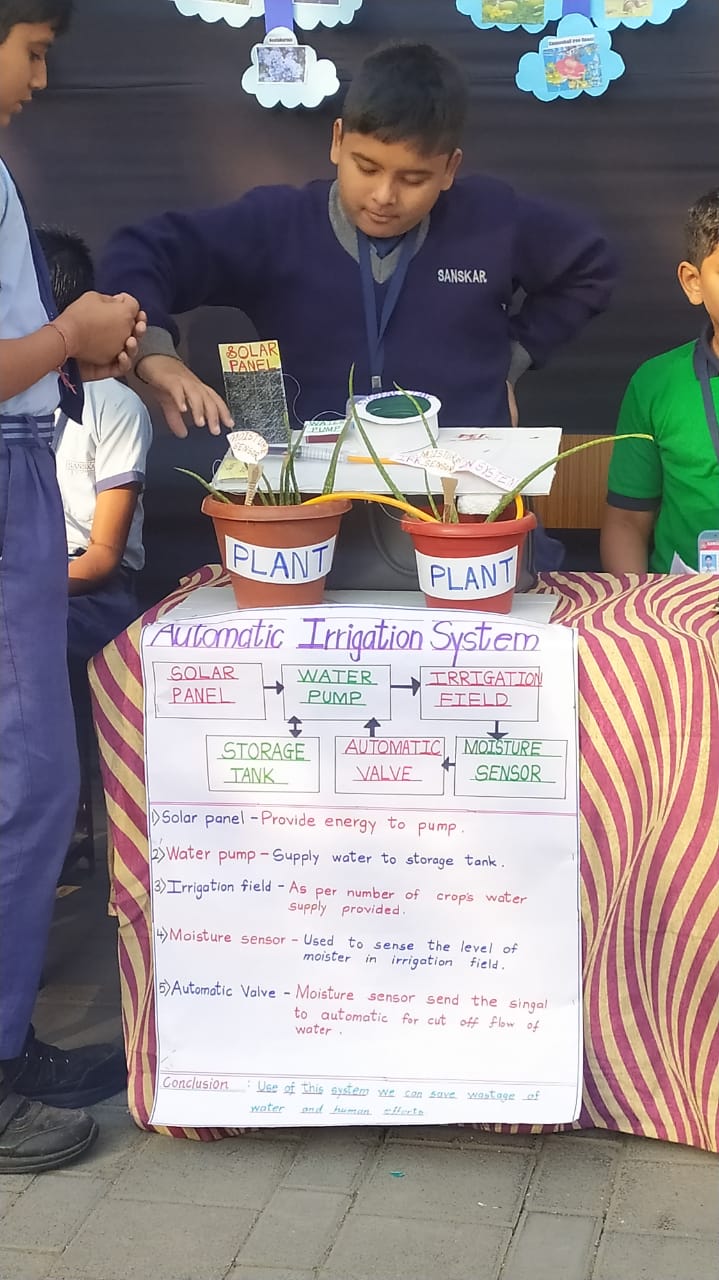 Neelakurinji
Cannonball tree flower
SANSKAR
SOLAR
PANEL
WATER
PUMP
MOISTURE
SENSOR
MOISTURE
SENSOR
SYSTEM
PLANT
PLANT
Automatic Irrigation System
SOLAR
PANEL
WATER
PUMP
IRRIGATION
FIELD
STORAGE
TANK
AUTOMATIC
VALVE
MOISTURE
SENSOR
1) Solar panel - Provide energy to pump.
2) Water pump - Supply water to storage tank.
3) Irrigation field - As per number of crop's water
supply provided.
4) Moisture sensor - Used to sense the level of
moister in irrigation field.
5) Automatic Valve - Moisture sensor send the singal
to automatic for cut off flow of
water.
Conclusion : Use of this system we can save wastage of
water and human efforts